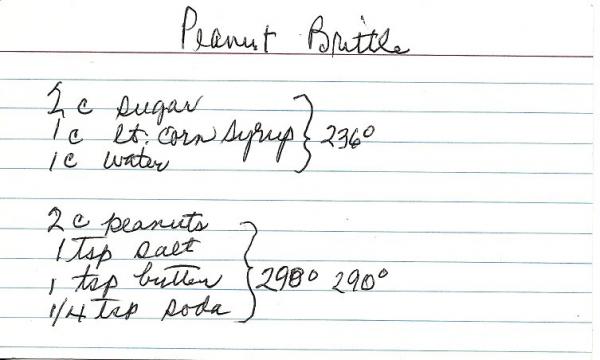 Peanut Brittle
2 c sugar
1 c lt. corn syrup } 236°
1 c water
2 c peanuts
1 Tsp salt
1 tsp butter } 298° 290°
1/4 tsp soda